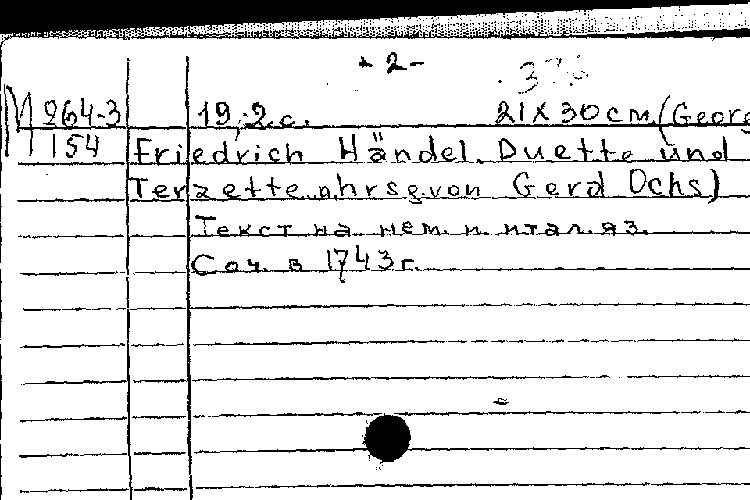 - 2 -
M 264-3 19, 2 с. 21 X 30 см. (Georg
154 Friedrich Händel. Duette und
Terzette. hrsg. von Gerd Ochs)
Текст на нем. и итал. яз.
Соч. в 1743 г.